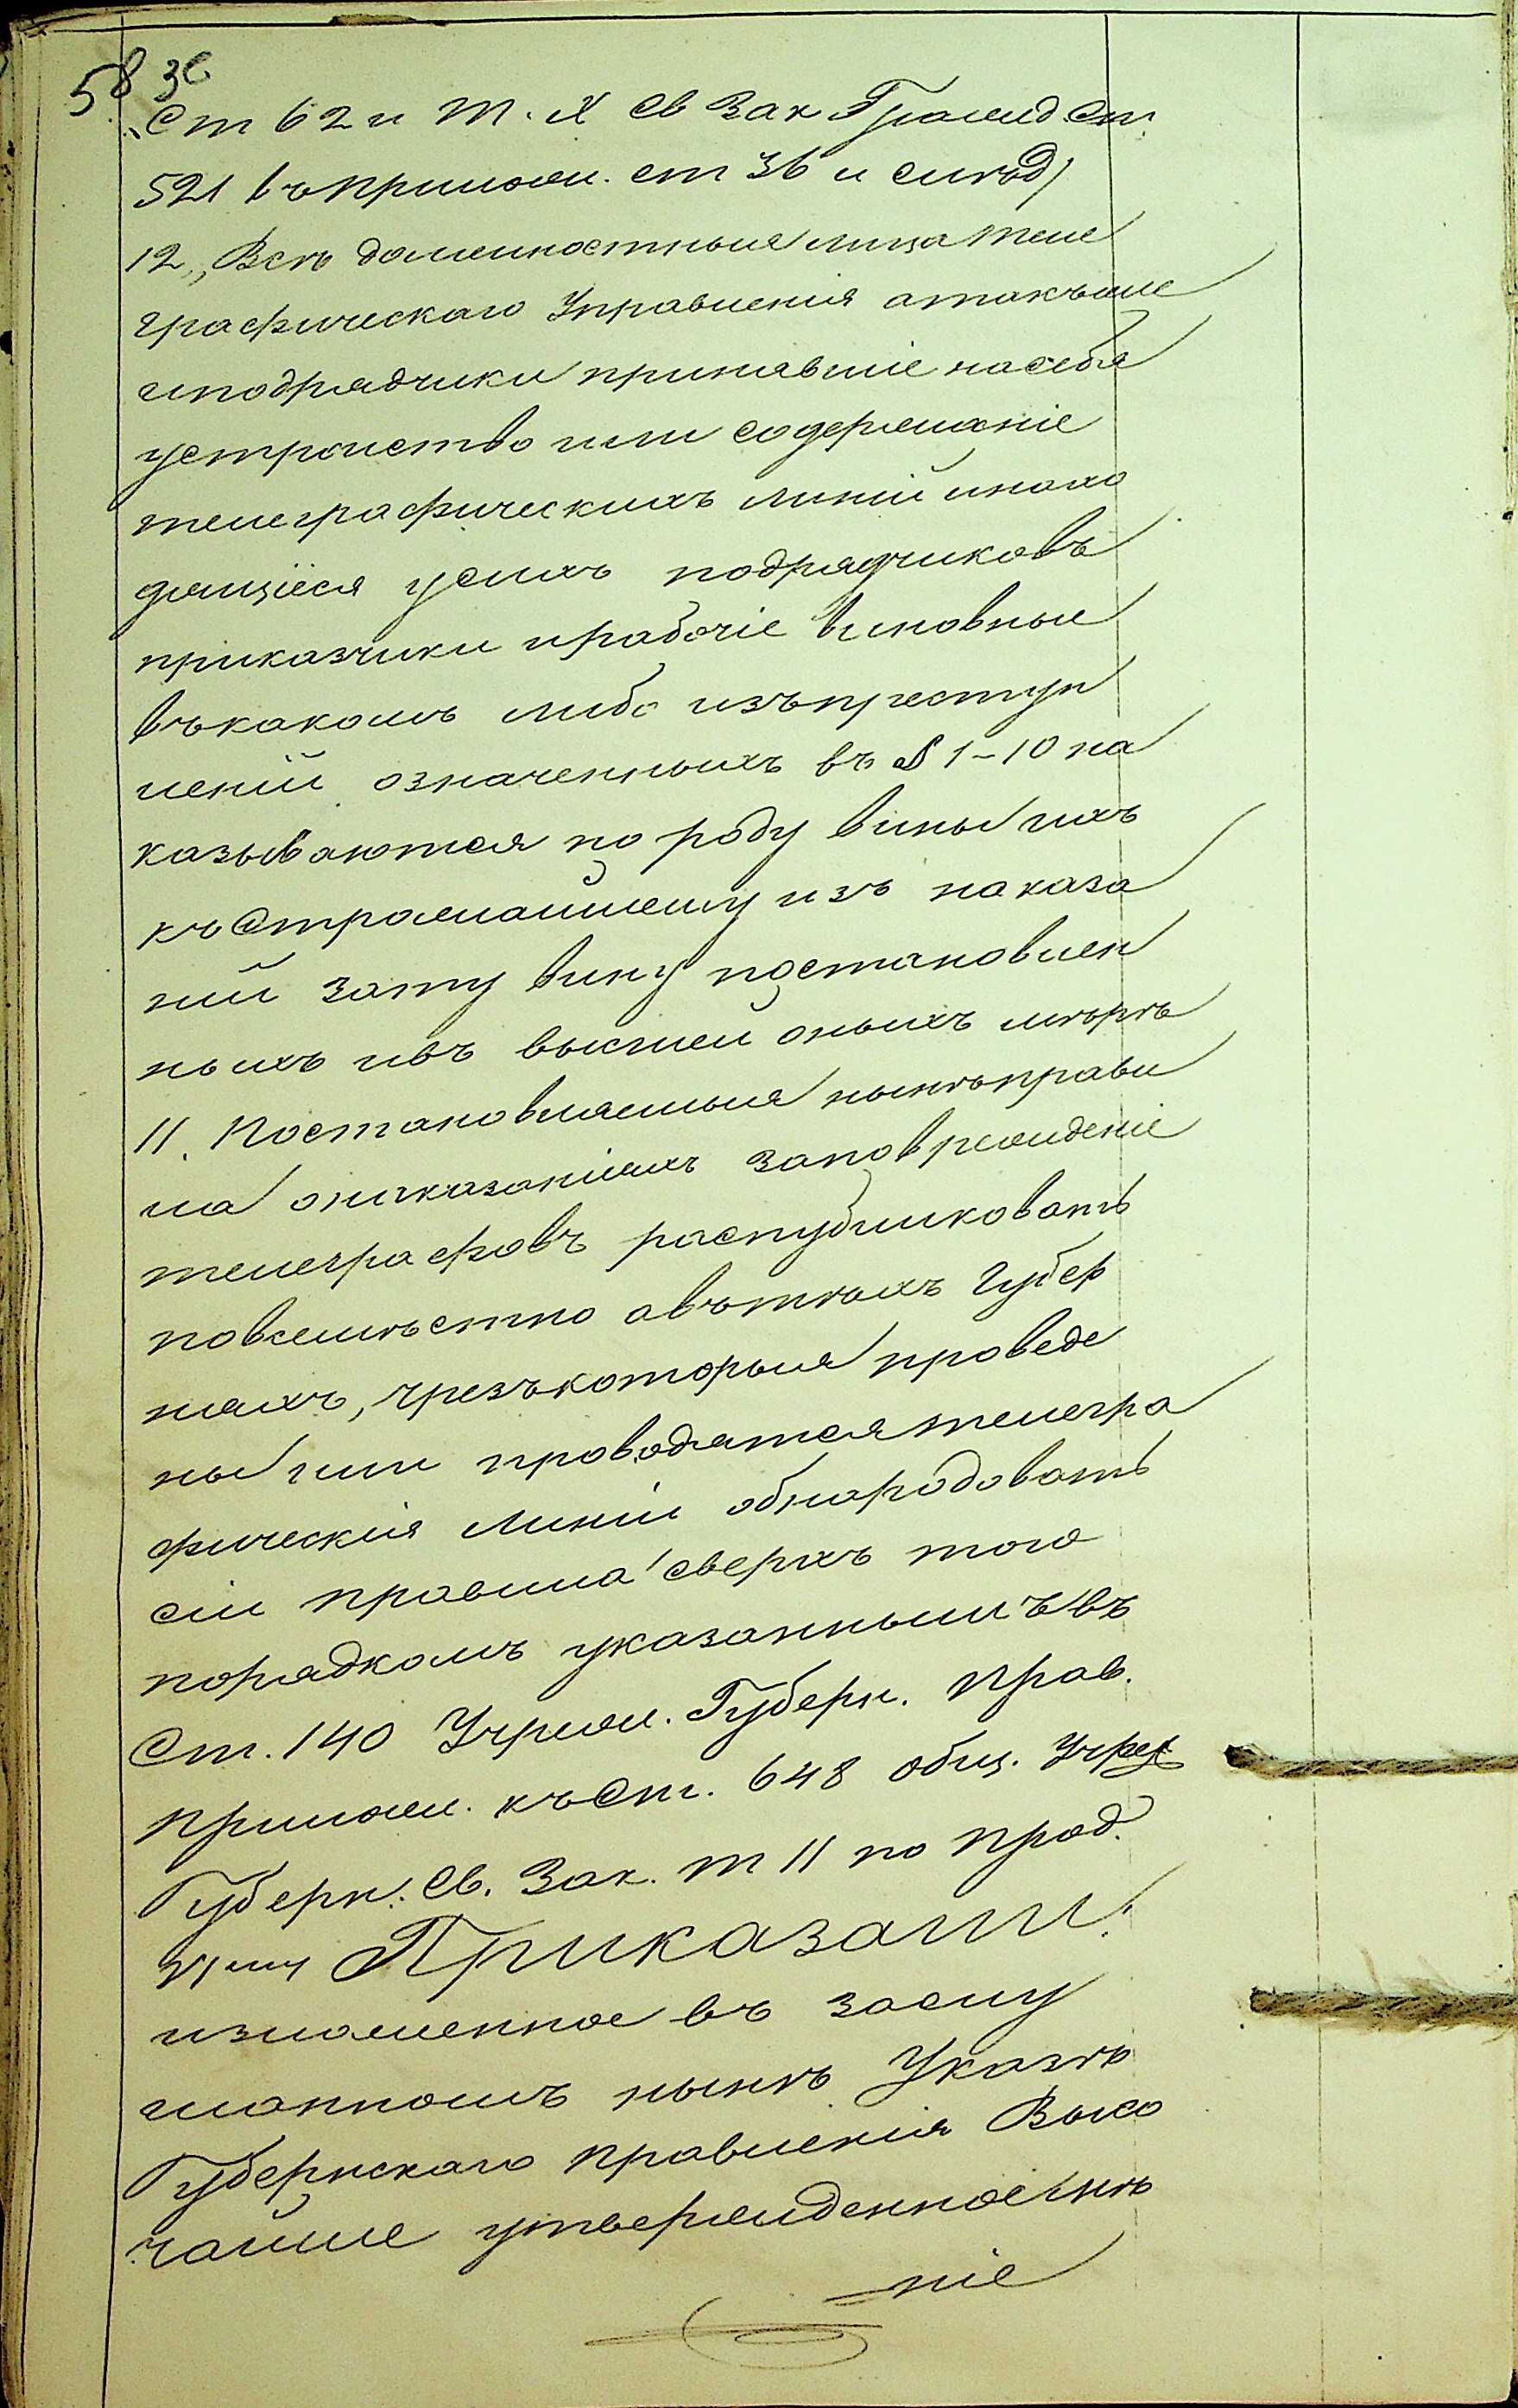 58 30
Ст 62 и Т. X Св Зак Гражд Ст
521 въ прилож. ст 36 и слѣд)
12,, Всѣ должностныя лица теле
графическаго Управленія атакъже
иподрядчики принявшіе насебя
устроиство или содержаніе
телеграфическихъ линій инахо
дящіеся усихъ подрядчиковъ
приказчики ирабочіе виновные
въкакомъ либо изъпреступ
леній означенныхъ въ § 1-10 на
казываются по роду вины ихъ
къ Строжайшему изъ наказа
ній зату вину постановлен
ныхъ ивъ высшей оныхъ мѣрѣ
II. Постановляемыя нынѣправи
ла онаказаніяхъ заповрежденіе
телеграфовъ распубликовать
повсемѣстно авътѣхъ Губер
ніяхъ, чрезъкоторыя проведе
ны или проводятся телегра
фическія линіи обнародовать
сіи правила сверхъ того
порядкомъ указаннымъ въ
Ст. 140 Учреж. Губерн. Прав.
Прилож. къ Ст. 648 общ. Учреж
Губерн. Св. Зак. т II по Прод.
VIму Приказали:
изложенное въ заслу
шанномъ нынѣ Указѣ
Губернскаго Правленія Высо
чайше утвержденное мнѣ
ніе